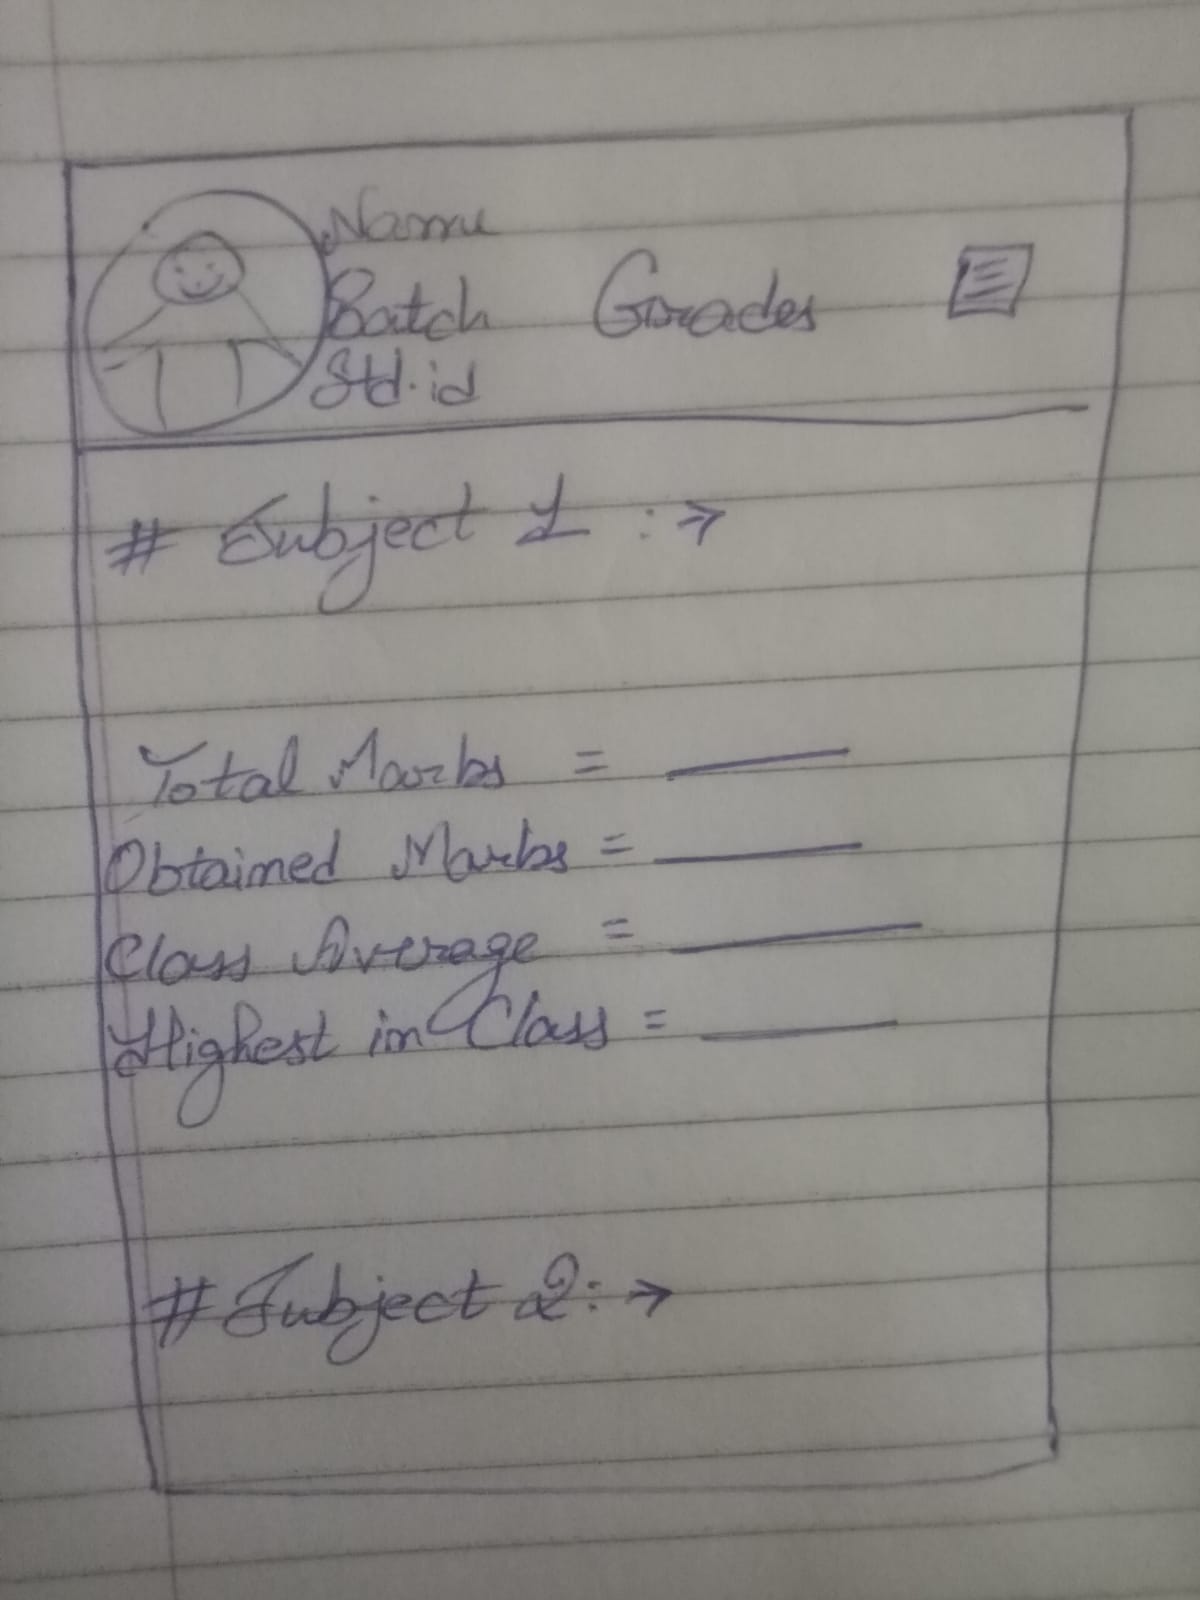 Name
Batch Grades
Std.id
# Subject 1 :→
Total Marks = ____
Obtained Marks = ____
Class Average = ____
Highest in Class = ____
# Subject 2:→